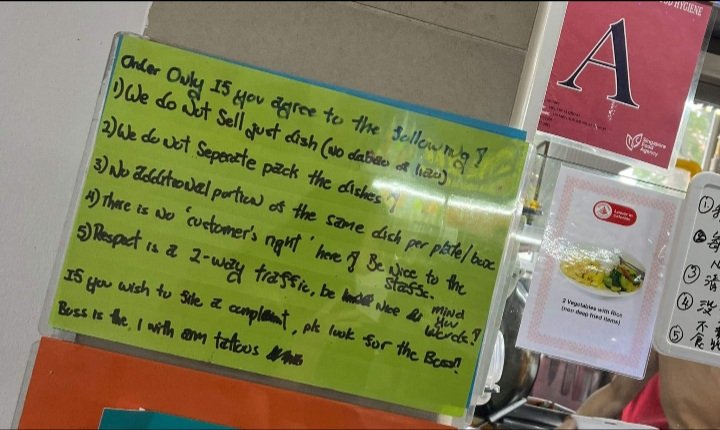 Order Only If you agree to the following !
1) We do Not Sell Just dish (No dabao of liao)
2) We do not Seperate pack the dishes !
3) No additional portion of the same dish per plate/box
4) There is no 'customer's right' here ! Be Nice to the Staffs.
5) Respect is a 2-way traffic, be nice & mind your words !
If you wish to file a complaint, pls look for the Boss !!
Boss is the 1 with arm tattoos
HYGIENE
A
Singapore
Food
Agency
2 Vegetables with Rice
(non deep fried items)
①
②
③
④ 没
⑤